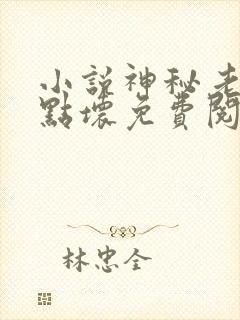 小說神秘老
點壞免費閱
林忠全